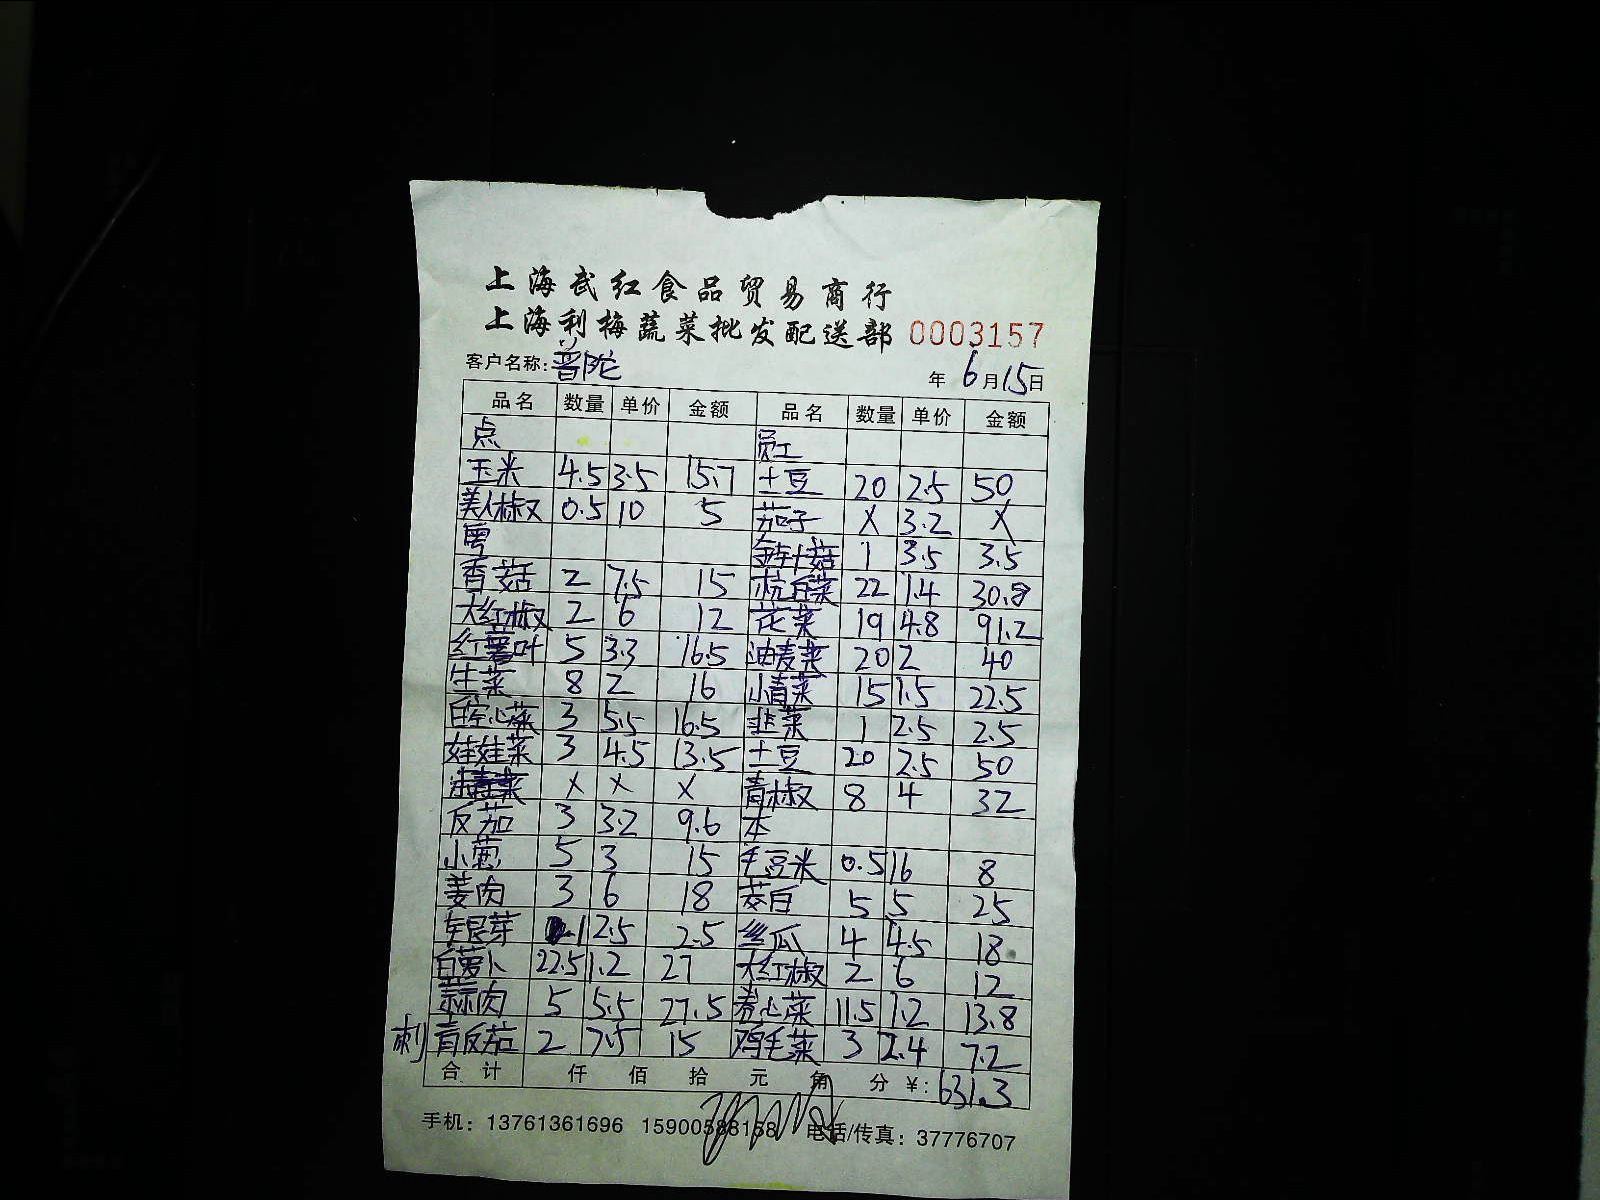 上海武红食品贸易商行
上海利梅蔬菜批发配送部 0003157
客户名称:普陀 年 6月15日
品名 数量 单价 金额 品名 数量 单价 金额
点 员工
玉米 4.5 3.5 15.7 土豆 20 2.5 50
美人椒 0.5 10 5 茄子 X 3.2 X
粤 金针菇 1 3.5 3.5
香菇 2 7.5 15 杭白菜 22 1.4 30.8
大红椒 2 6 12 花菜 19 4.8 91.2
红薯叶 5 3.3 16.5 油麦菜 20 2 40
生菜 8 2 16 小青菜 15 1.5 22.5
白空心菜 3 5.5 16.5 韭菜 1 2.5 2.5
娃娃菜 3 4.5 13.5 土豆 20 2.5 50
X X X 青椒 8 4 32
反茄 3 3.2 9.6 本
小葱 5 3 15 毛豆米 0.5 16 8
姜肉 3 6 18 茭白 5 5 25
银芽 1 2.5 2.5 丝瓜 4 4.5 18
白萝卜 22.5 1.2 27 大红椒 2 6 12
蒜肉 5 5.5 27.5 卷心菜 11.5 1.2 13.8
刺 青反茄 2 7.5 15 鸡毛菜 3 2.4 7.2
合计 仟 佰 拾 元 角 分 ¥: 631.3
手机: 13761361696 15900588158 电话/传真: 37776707